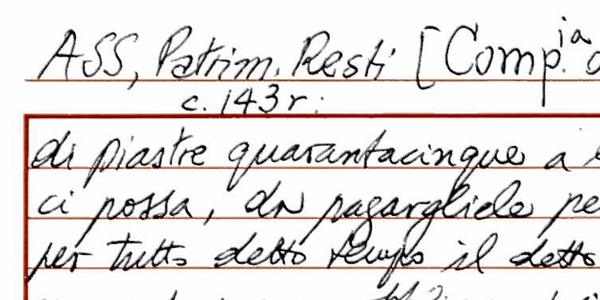 ASS, Patrim. Resti [Comp.ia d
c. 143r:
di piastre quarantacinque a
ci possa, da pagargliele pe
per tutto detto tempo il detto